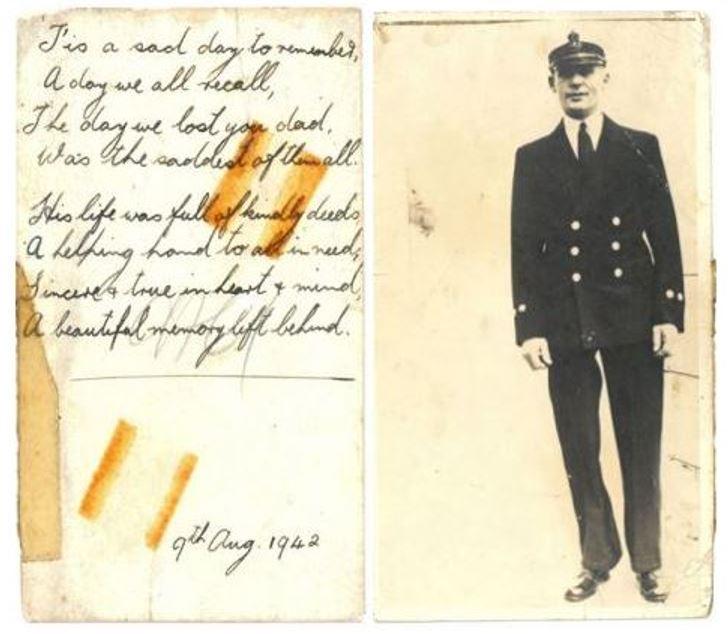 T'is a sad day to remember,
A day we all recall,
The day we lost you dad,
Was the saddest of them all.
His life was full of kindly deeds
A helping hand to all in need,
Sincere & true in heart & mind,
A beautiful memory left behind.
9th Aug. 1942